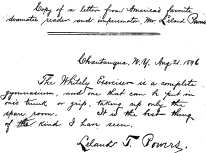 Copy of a letter from America's favorite
dramatic reader and impersonator, Mr Leland Powers
Chautauqua, N.Y. Aug 21, 1896
The Whitely Exerciser is a complete
gymnasium, and one that can be put in
one's trunk or grip, taking up only the
spare room. It is the best thing
of the kind I have seen.
Leland T. Powers.